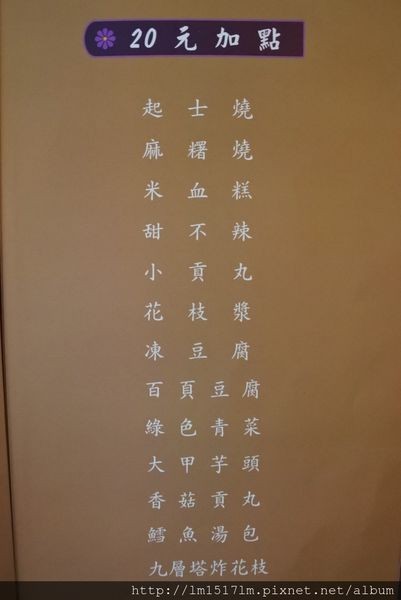 20元加點
起士燒
麻糬燒
米血糕
甜不辣
小貢丸
花枝漿
凍豆腐
百頁豆腐
綠色青菜
大甲芋頭
香菇貢丸
鱈魚湯包
九層塔炸花枝
http://lm1517lm.pixnet.net/album